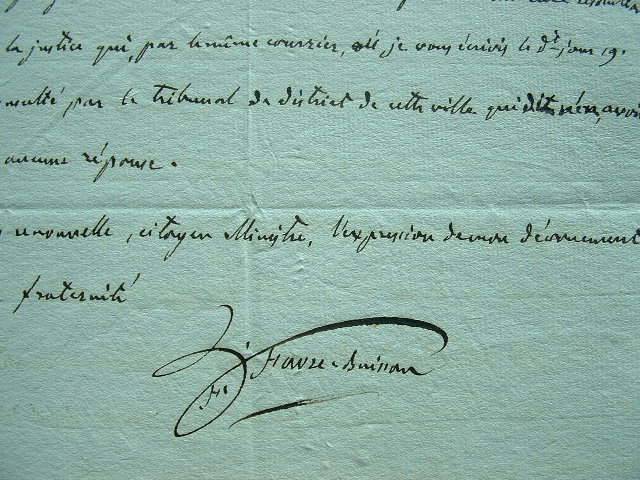 la justice qui, par le même courrier, où, je vous écrivis le dt jour 19.
consulté par le tribunal de district de cette ville qui dit n'en avoir
aucune réponse.
renouvelle, citoyen Ministre, l'expression de mon dévouement
fraternité
Favre-Buisson